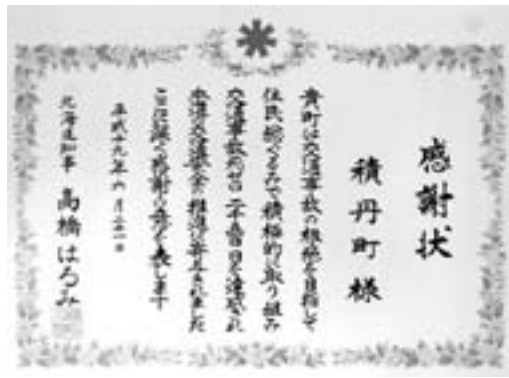 感謝状
積丹町様
貴町は交通事故の根絶を目指して
住民総ぐるみで積極的に取り組み
交通事故死ゼロ 日を達成され
交通安全の推進に寄与されました
ここに深く感謝の意を表します
平成十九年六月二十一日
北海道知事 高橋はるみ